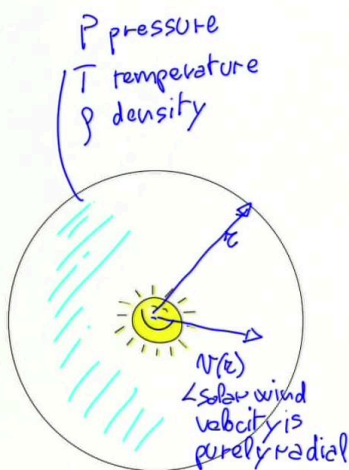 P pressure
T temperature
ρ density
r
v(r)
solar wind
velocity is
purely radial